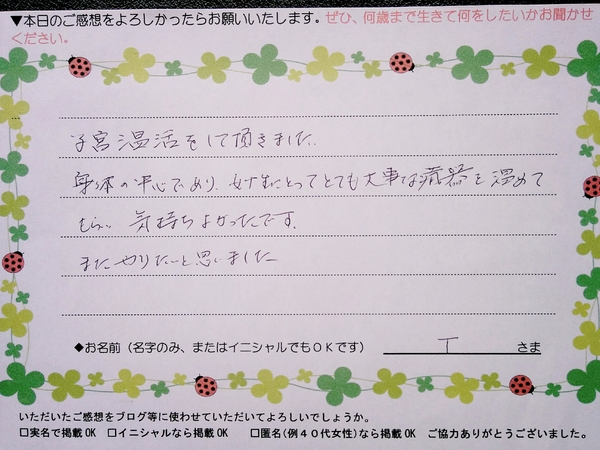 ▼本日のご感想をよろしかったらお願いいたします。ぜひ、何歳まで生きて何をしたいかお聞かせ
ください。
子宮温活をして頂きました。
身体の中心であり、女性にとってとても大事な臓器を温めて
もらい、気持ちよかったです。
またやりたいと思いました
◆お名前（名字のみ、またはイニシャルでもＯＫです） T さま
いただいたご感想をブログ等に使わせていただいてよろしいでしょうか。
□実名で掲載 OK □イニシャルなら掲載 OK □匿名(例４０代女性)なら掲載 OK ご協力ありがとうございました。